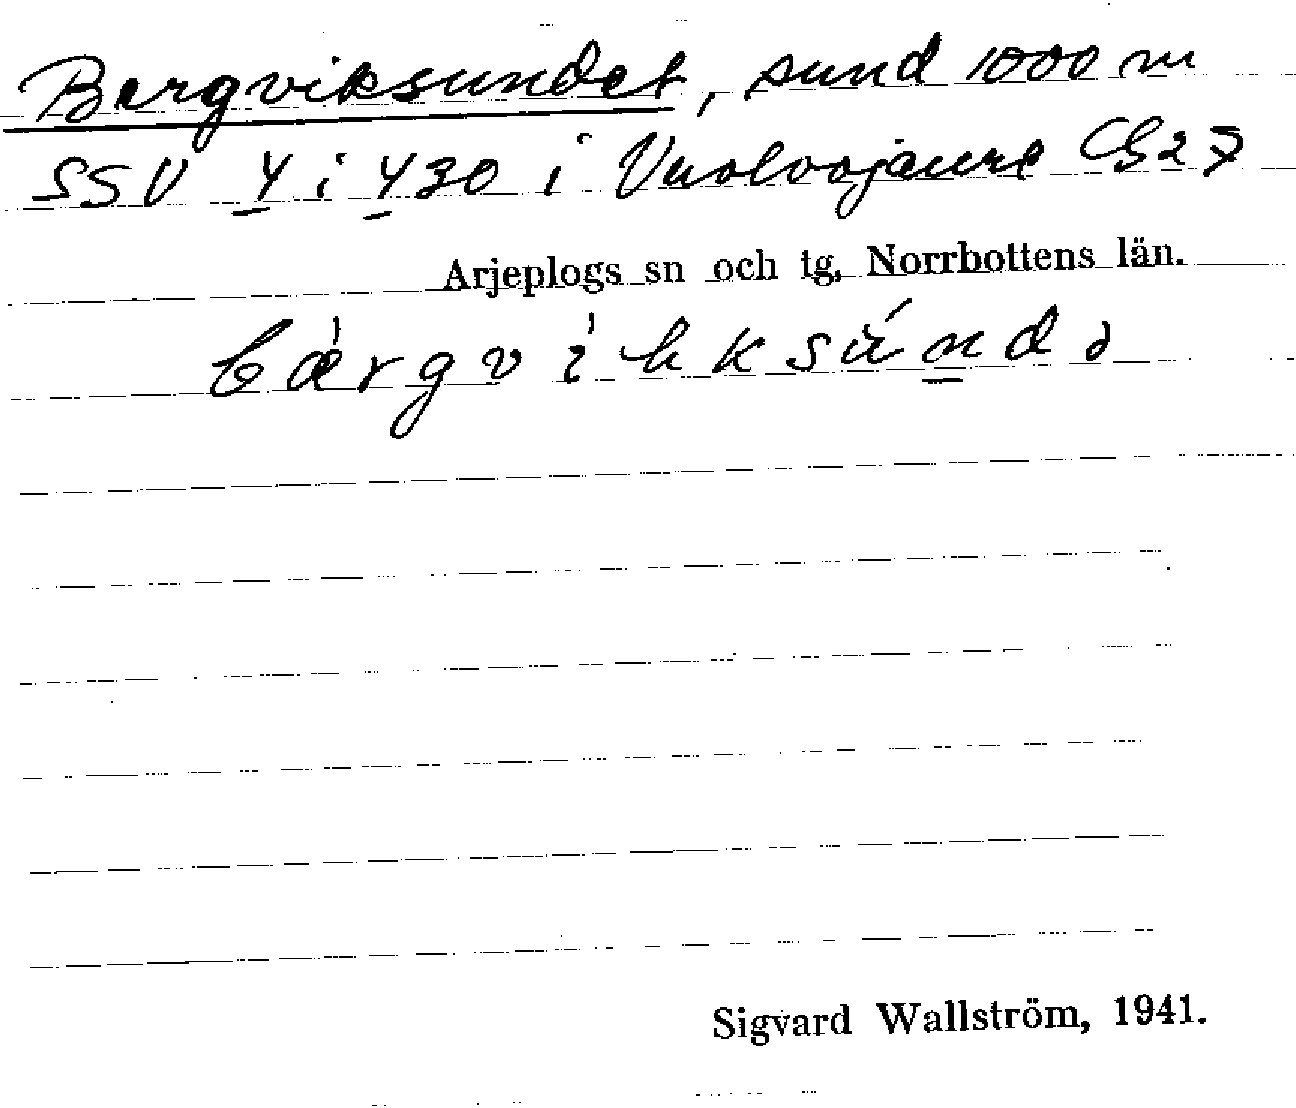 Bergviksundet, sund 1000 m
SSV 4 i 430 i Vuolvojaure C827
Arjeplogs sn och tg, Norrbottens län.
bærgvikksúndə
Sigvard Wallström, 1941.